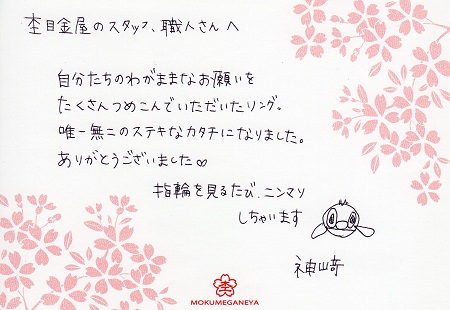 杢目金屋のスタッフ、職人さんへ
自分たちのわがままなお願いを
たくさんつめこんでいただいたリング。
唯一無二のステキなカタチになりました。
ありがとうございました♡
指輪を見るたび、ニンマリ
しちゃいます
神山奇
MOKUMEGANEYA